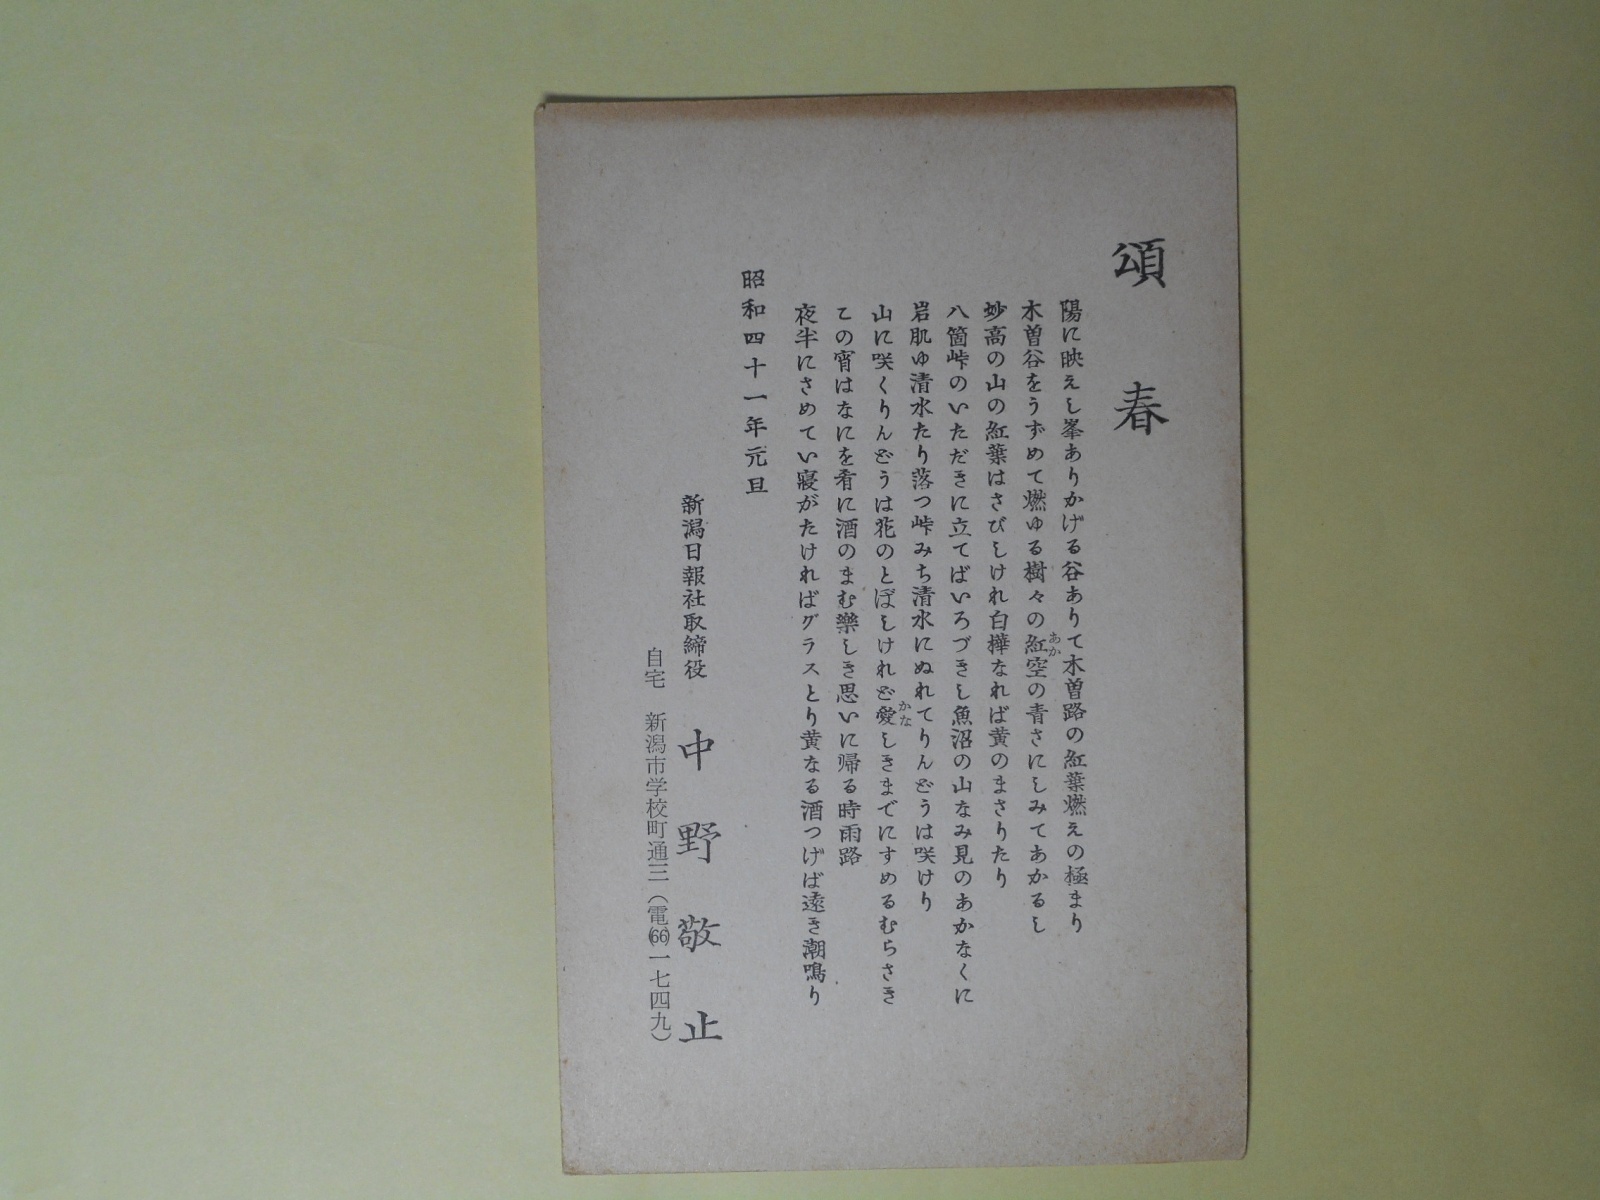 頌春
陽に映えし峯ありかげる谷ありて木曽路の紅葉燃えの極まり
木曽谷をうずめて燃ゆる樹々の紅空の青さにしみてあかるし
あか
妙高の山の紅葉はさびしけれ白樺なれば黄のまさりたり
八箇峠のいただきに立てばいろづきし魚沼の山なみ見のあかなくに
岩肌ゆ清水たり落つ峠みち清水にぬれてりんどうは咲けり
山に咲くりんどうは花のとぼしけれど愛しきまでにすめるむらさき
かな
この宵はなにを肴に酒のまむ樂しき思いに帰る時雨路
夜半にさめてい寝がたければグラスとり黄なる酒つげば遠き潮鳴り
昭和四十一年元旦
新潟日報社取締役 中野敬止
自宅 新潟市学校町通三（電(66)一七四九）